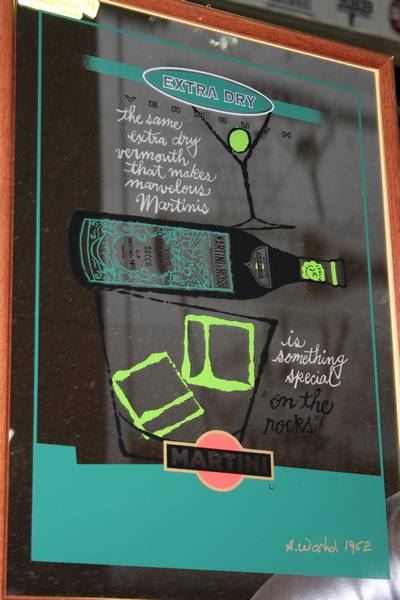 EXTRA DRY
VERMOUTH
the same
extra dry
vermouth
that makes
marvelous
Martinis
MARTINI & ROSSI
SECCO
is
something
special
"on the
rocks"!
MARTINI
A. Warhol 1962